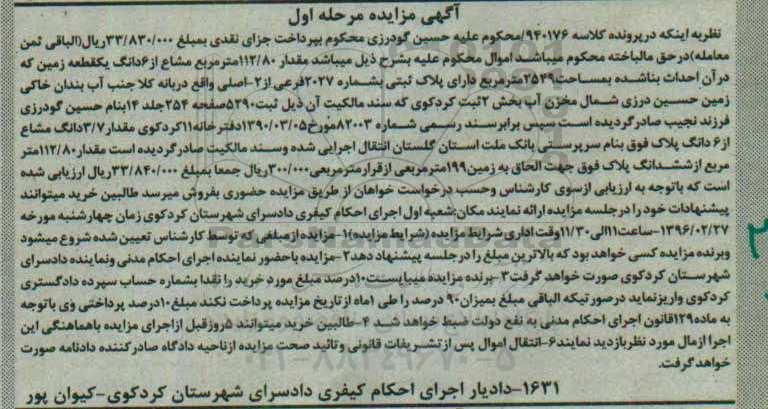 آگهی مزایده مرحله اول
نظر به اینکه در پرونده کلاسه ۹۴۰۱۷۶/محکوم علیه حسین گودرزی محکوم بپرداخت جزای نقدی بمبلغ ۳۳/۸۳۰/۰۰۰ریال(الباقی ثمن
معامله)در حق مالباخته محکوم میباشد اموال محکوم علیه بشرح ذیل میباشد مقدار ۱۱۲/۸۰مترمربع مشاع از۶دانگ یکقطعه زمین که
در آن احداث بناشده بمساحت۲۵۴۹مترمربع دارای پلاک ثبتی بشماره ۲۰۲۷فرعی از۲-اصلی واقع درباغه کلا جنب آب بندان خاکی
زمین حسین درزی شمال مخزن آب بخش ۲ثبت کردکوی که سند مالکیت آن ذیل ثبت۵۲۹۰صفحه ۲۵۴جلد ۱۴بنام حسین گودرزی
فرزند نجیب صادر گردیده است سپس برابر سند رسمی شماره ۸۲۰۰۳مورخ۱۳۹۰/۰۳/۰۵دفترخانه۱۱کردکوی مقدار۳/۷دانگ مشاع
از۶ دانگ پلاک فوق بنام سرپرستی بانک ملت استان گلستان انتقال اجرایی شده وسند مالکیت صادر گردیده است مقدار۱۱۲/۸۰متر
مربع از ششدانگ پلاک فوق جهت الحاق به زمین۱۹۹مترمربعی از قرار مترمربعی۳۰۰/۰۰۰ریال جمعا بمبلغ ۳۳/۸۴۰/۰۰۰ریال ارزیابی شده
است که باتوجه به ارزیابی ازسوی کارشناس وحسب درخواست خواهان از طریق مزایده حضوری بفروش میرسد طالبین خرید میتوانند
پیشنهادات خود را در جلسه مزایده ارائه نمایند مکان:شعبه اول اجرای احکام کیفری دادسرای شهرستان کردکوی زمان چهارشنبه مورخه
۱۳۹۶/۰۲/۲۷-ساعت۱۱الی۱۱/۳۰وقت اداری شرایط مزایده (شرایط مزایده)۱-مزایده از مبلغی که توسط کارشناس تعیین شده شروع میشود
وبرنده مزایده کسی خواهد بود که بالاترین مبلغ را در جلسه پیشنهاد دهد۲-مزایده باحضور نماینده اجرای احکام مدنی ونماینده دادسرای
شهرستان کردکوی صورت خواهد گرفت۳-برنده مزایده میبایست۱۰درصد مبلغ مورد خرید را نقدا بشماره حساب سپرده دادگستری
کردکوی واریزنماید در صورتیکه الباقی مبلغ بمیزان۹۰ درصد را طی ۱ماه از تاریخ مزایده پرداخت نکند مبلغ۱۰درصد پرداختی وی باتوجه
به ماده۱۲۹قانون اجرای احکام مدنی به نفع دولت ضبط خواهد شد ۴-طالبین خرید میتوانند ۵روزقبل ازاجرای مزایده باهماهنگی این
اجرا ازمال مورد نظربازدید نمایند۶-انتقال اموال پس ازتشریفات قانونی وتائید صحت مزایده ازناحیه دادگاه صادرکننده دادنامه صورت
خواهد گرفت.
۱۶۳۱-دادیار اجرای احکام کیفری دادسرای شهرستان کردکوی-کیوان پور